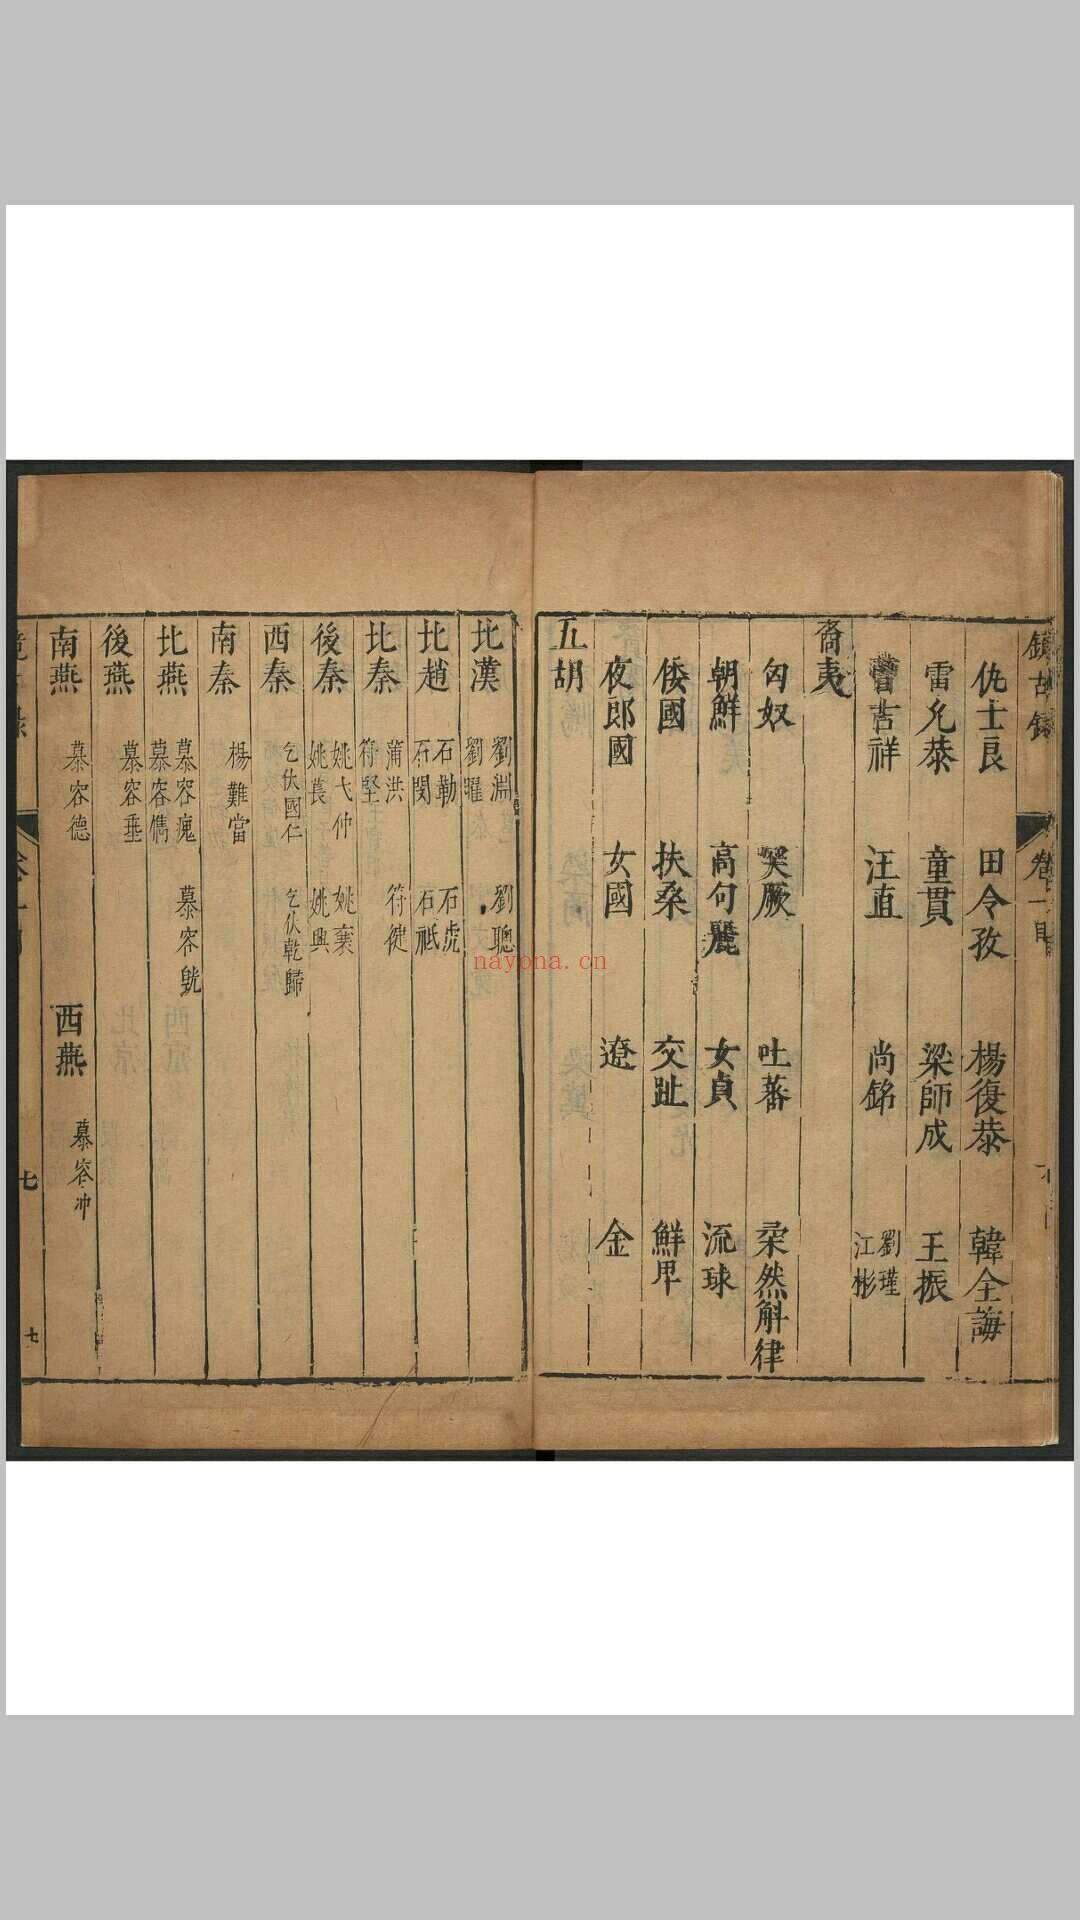 仇士良 田令孜 楊復恭 韓全誨
雷允恭 童貫 梁師成 王振
曹吉祥 汪直 尚銘 劉瑾 江彬
裔夷
匈奴 突厥 吐蕃 柔然斛律
朝鮮 高句麗 女貞 流球
倭國 扶桑 交趾 鮮卑
夜郎國 女國 遼 金
五胡
北漢 劉淵 劉聰 劉曜
北趙 石勒 石虎 石閔 石祗
北秦 蒲洪 苻健 苻堅
後秦 姚弋仲 姚襄 姚萇 姚興
西秦 乞伏國仁 乞伏乾歸
南秦 楊難當
北燕 慕容廆 慕容皝 慕容儁
後燕 慕容垂
南燕 慕容德 西燕 慕容冲
七
七
nayona.cn